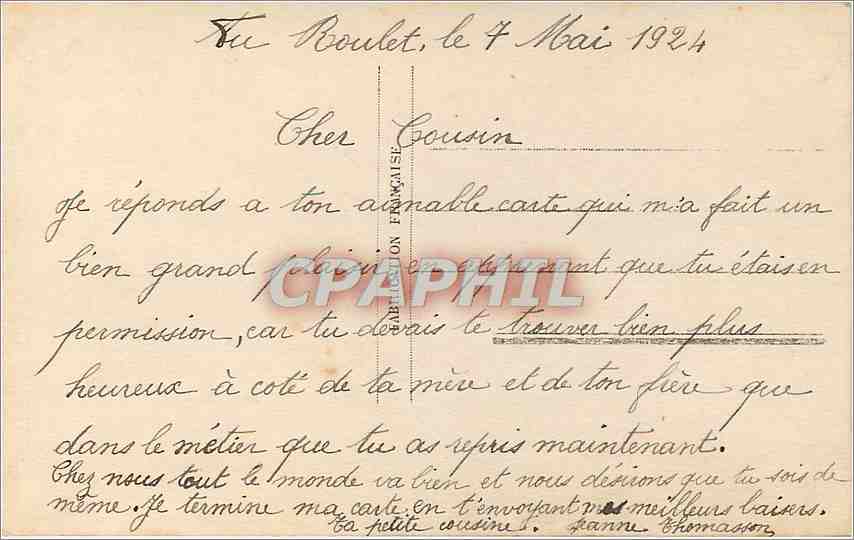 Au Roulet, le 7 Mai 1924
Cher Cousin
Je réponds a ton aimable carte qui m'a fait un
bien grand plaisir en apprenant que tu étais en
permission, car tu devais te trouver bien plus
heureux à coté de ta mère et de ton frère que
dans le métier que tu as repris maintenant.
Chez nous tout le monde va bien et nous désirons que tu sois de
même. Je termine ma carte en t'envoyant mes meilleurs baisers.
Ta petite cousine. Jeanne Thomasson
FABRICATION FRANÇAISE
CPAPHIL